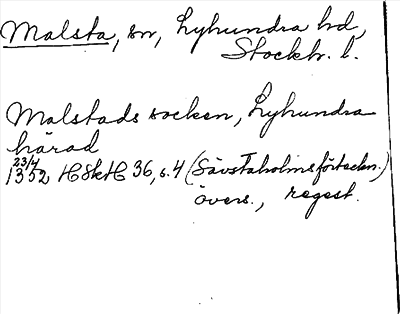 Malsta, sn, Lyhundra hd,
Stockh. l.
Malstads socken, Lyhundra
härad
23/4
1352 HSkH 36, s. 4 (Sävstaholmsförteckn.)
övers., regest.